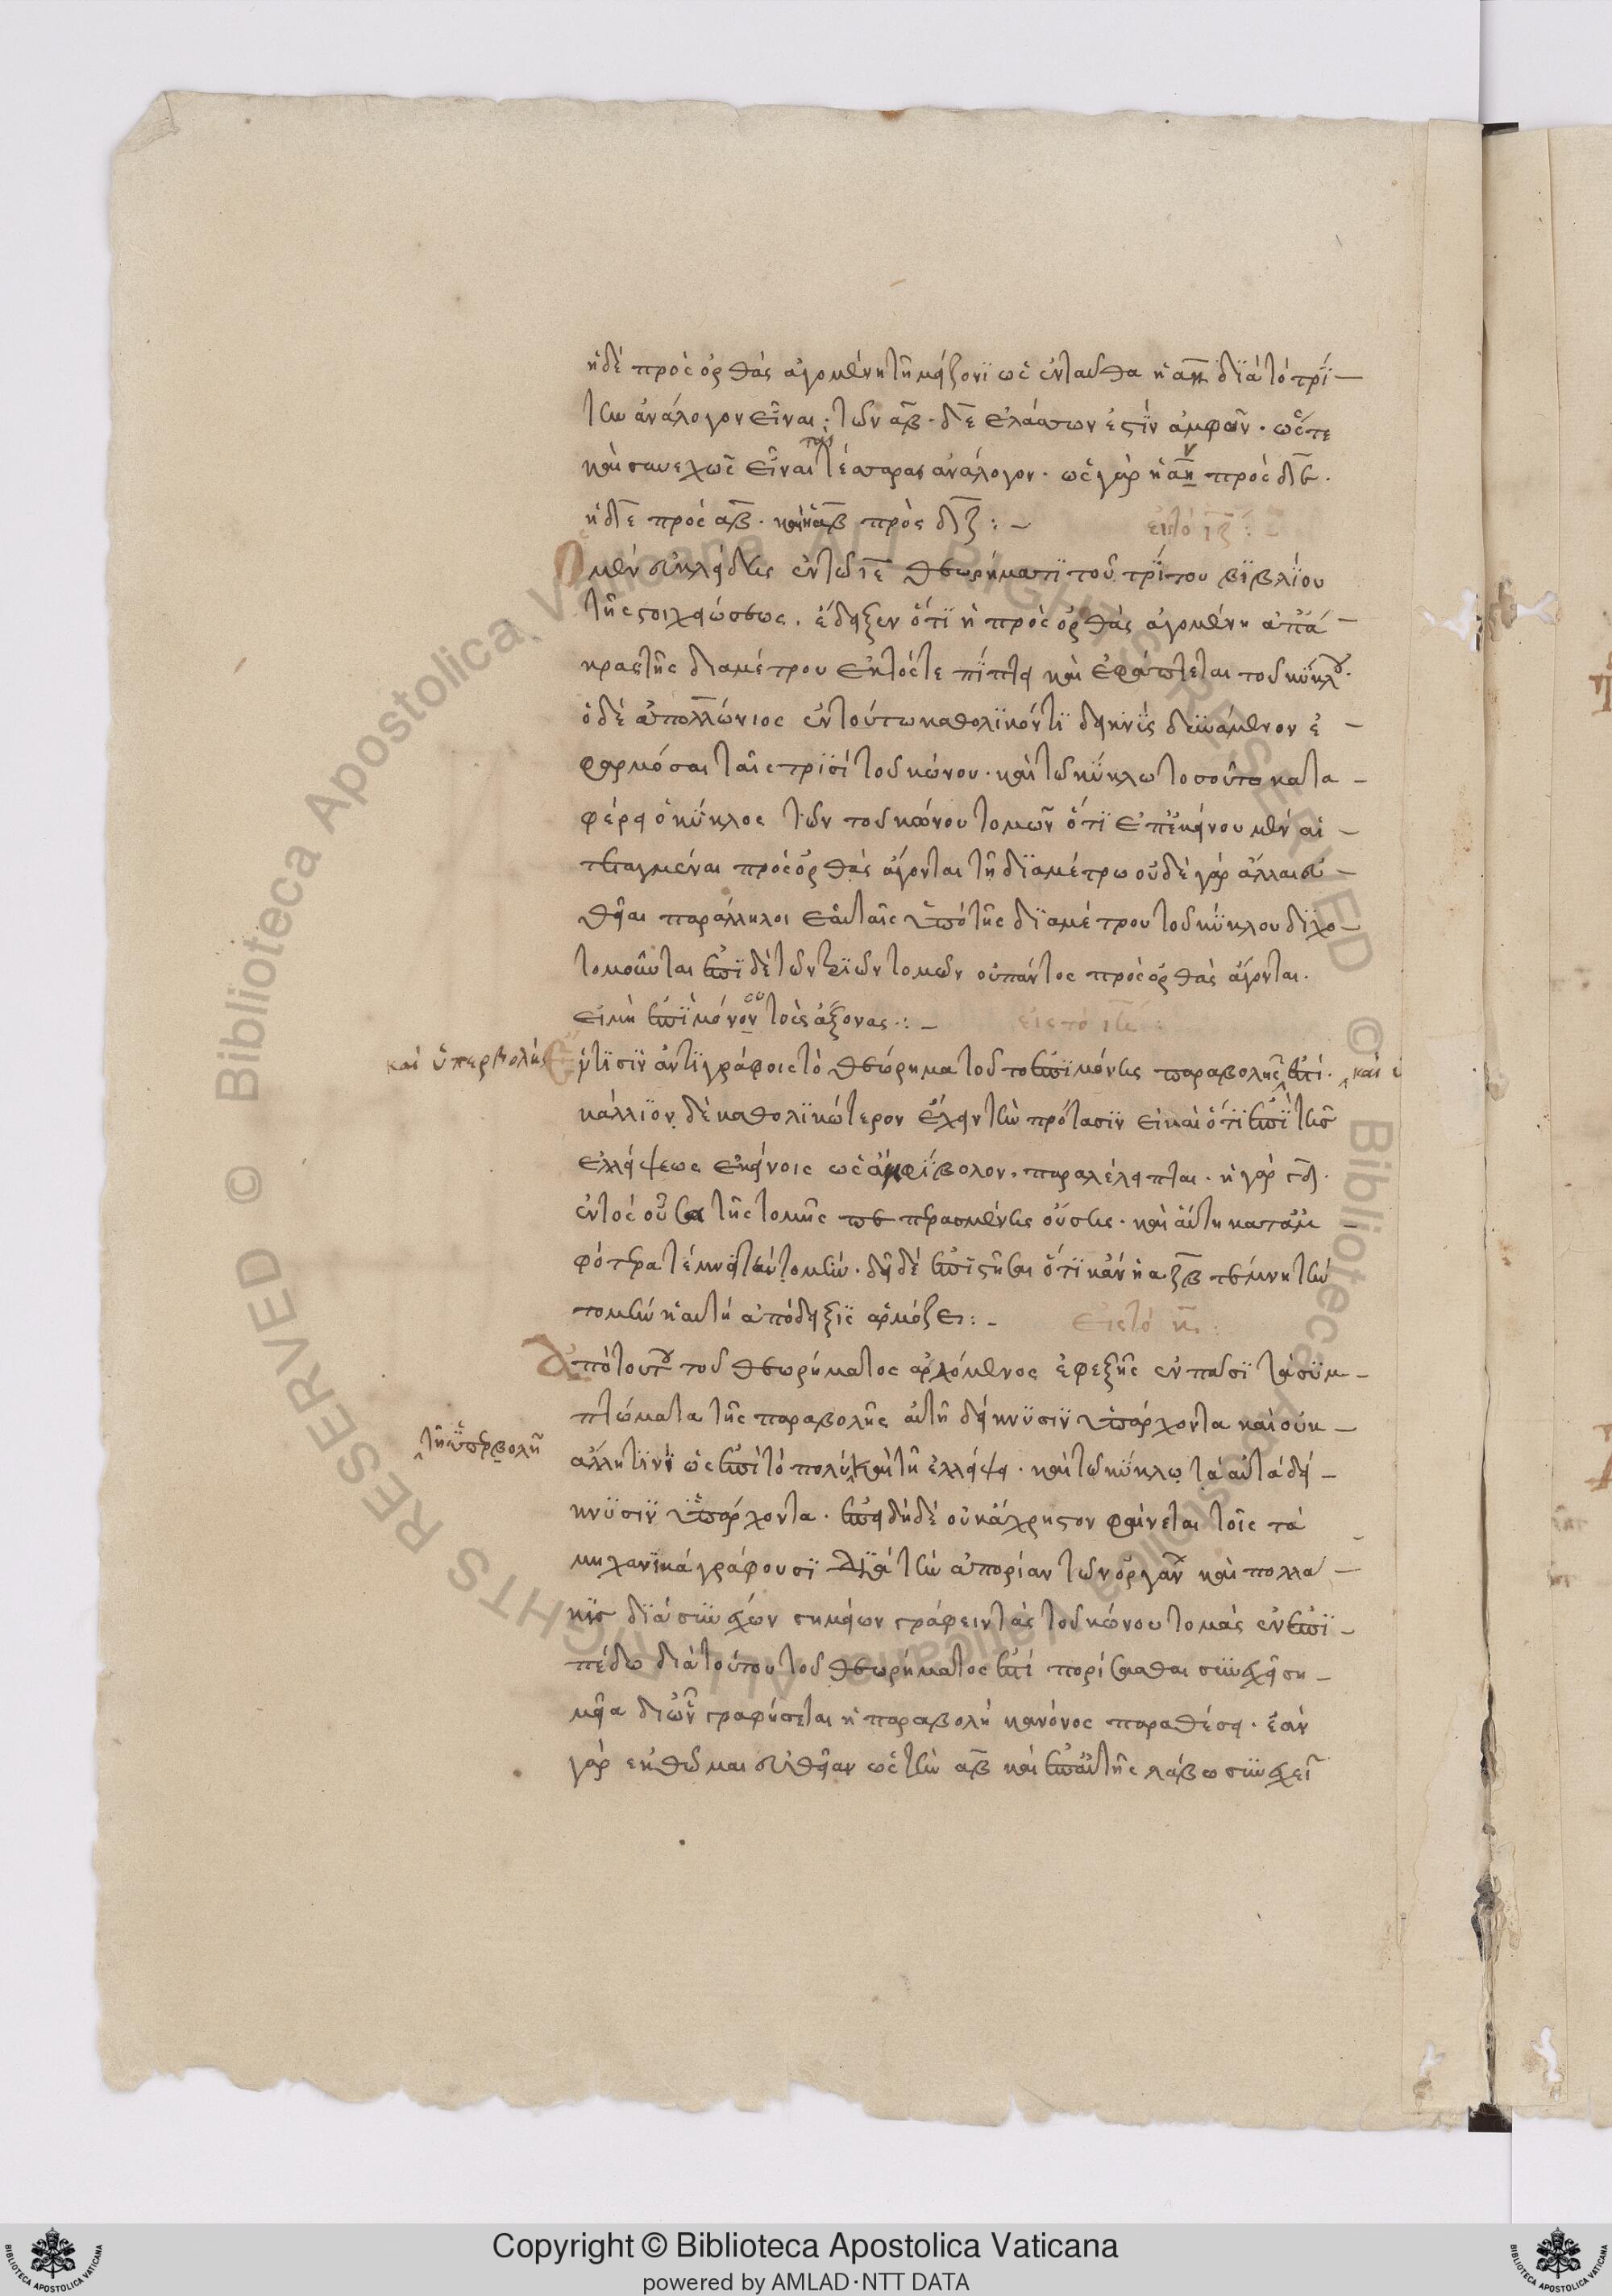 ἡ δὲ πρὸς ὀρθὰς ἀγομένη τῆ μείζονϊ ὡς ἐνταυθα ἡ αη δϊὰ τὸ τρί
την ἀνάλογον εἶναι τῶν αβ. δε ἐλάσσων ἐστϊν ἀμφοῖν. ὥστε
καὶ συνεχῶς εἶναι τὰς τέσσαρας ἀνάλογον. ὡς γὰρ ἡ αν πρὸς δε.
ἡ δε πρὸς αβ. καὶ ἡ αβ πρὸς δζ:
εἰς τὸ ιζ:
Ὁ μὲν εὐκλείδης ἐν τῶ ιε θεωρήματϊ τοῦ τρίτου βϊβλϊου
τῆς στοιχειώσεως. ἔδειξεν ὅτϊ ἡ πρὸς ὀρθὰς ἀγομένη ἀπ ἄ
κρας τῆς διαμέτρου ἐκτός τε πίπτει καὶ ἐφάπτεται τοῦ κύκλου.
ὁ δὲ ἀπολλώνιος ἐν τούτω καθολϊκόν τϊ δείκνϋσϊ δυνάμενον ἐ
φαρμόσαι ταῖς τρϊσὶ τοῦ κώνου. καὶ τῶ κύκλω τοσοῦτο κατα
φέρει ὁ κύκλος τῶν τοῦ κώνου τομῶν ὅτϊ ἐπ ἐκείνου μὲν αἱ
τεταγμέναι πρὸς ὀρθὰς ἄγονται τῆ δϊαμέτρω οὐδὲ γὰρ ἄλλαι εὐ
θεῖαι παράλληλοι ἑαυταῖς ὑπὸ τῆς δϊαμέτρου τοῦ κϋκλου δϊχο
τομοῦνται ἐπϊ δὲ τῶν τρϊῶν τομῶν οὐ πάντως πρὸς ὀρθὰς ἄγονται.
εἰ μὴ ἐπϊ μόνους τοὺς ἄξονας:
εἰς τὸ ιη:
Ἔν τϊσϊν ἀντϊγράφοις τὸ θεώρημα τοῦτο ἐπϊ μόνης παραβολῆς ἐστί.
καὶ ὑπερβολῆς
κάλλϊον δὲ καθολϊκώτερον ἔχειν τὴν πρότασϊν εἰ καὶ ὅτϊ ἐπϊ τῆς
ἐλλείψεως ἐκείνοις ὡς ἀμφίβολον παραλέλειπται. ἡ γὰρ γδ.
ἐντὸς οὖσα τῆς τομῆς πεπερασμένης οὔσης. καὶ αὕτη κατ ἀμ
φότερα τέμνει τὴν τομὴν. δεῖ δὲ ἐπϊστῆσαι ὅτϊ κἂν ἡ αζβ τέμνη τὴν
τομὴν ἡ αυτὴ ἀπόδειξϊς ἁρμόζει:
εἰς τὸ κ:
Ἀπὸ τούτου τοῦ θεωρήματος ἀρχόμενος ἐφεξῆς ἐν πασϊ τὰ σϋμ
πτώματα τῆς παραβολῆς αὐτῆ δείκνϋσϊν ὑπάρχοντα καὶ οὐκ
ἄλλη τϊνϊ ὡς ἐπὶ τὸ πολὺ καὶ τῆ ἐλλείψει. καὶ τῶ κύκλω τὰ αὐτὰ δεί
τῆ ὑπερβολῆ
κνϋσϊν ὑπάρχοντα. ἐπεὶ δὴ δὲ οὐκ ἄχρηστον φαίνεται τοῖς τὰ
μηχανϊκὰ γράφουσϊ διὰ τὴν ἀπορίαν τῶν ὀργάνων καὶ πολλά
κϊς δϊὰ συνεχῶν σημείων γράφειν τὰς τοῦ κώνου τομὰς ἐν ἐπϊ
πέδω διὰ τούτου τοῦ θεωρήματος ἐστὶ πορίσασθαι συνεχῆ ση
μεῖα δι ὧν γραφήσεται ἡ παραβολὴ κανόνος παραθέσει. ἐὰν
γὰρ ἐκθῶμαι εὐθεῖαν ὡς τὴν αβ καὶ ἐπ αὐτῆς λάβω συνεχῆ
Copyright © Biblioteca Apostolica Vaticana
powered by AMLAD·NTT DATA